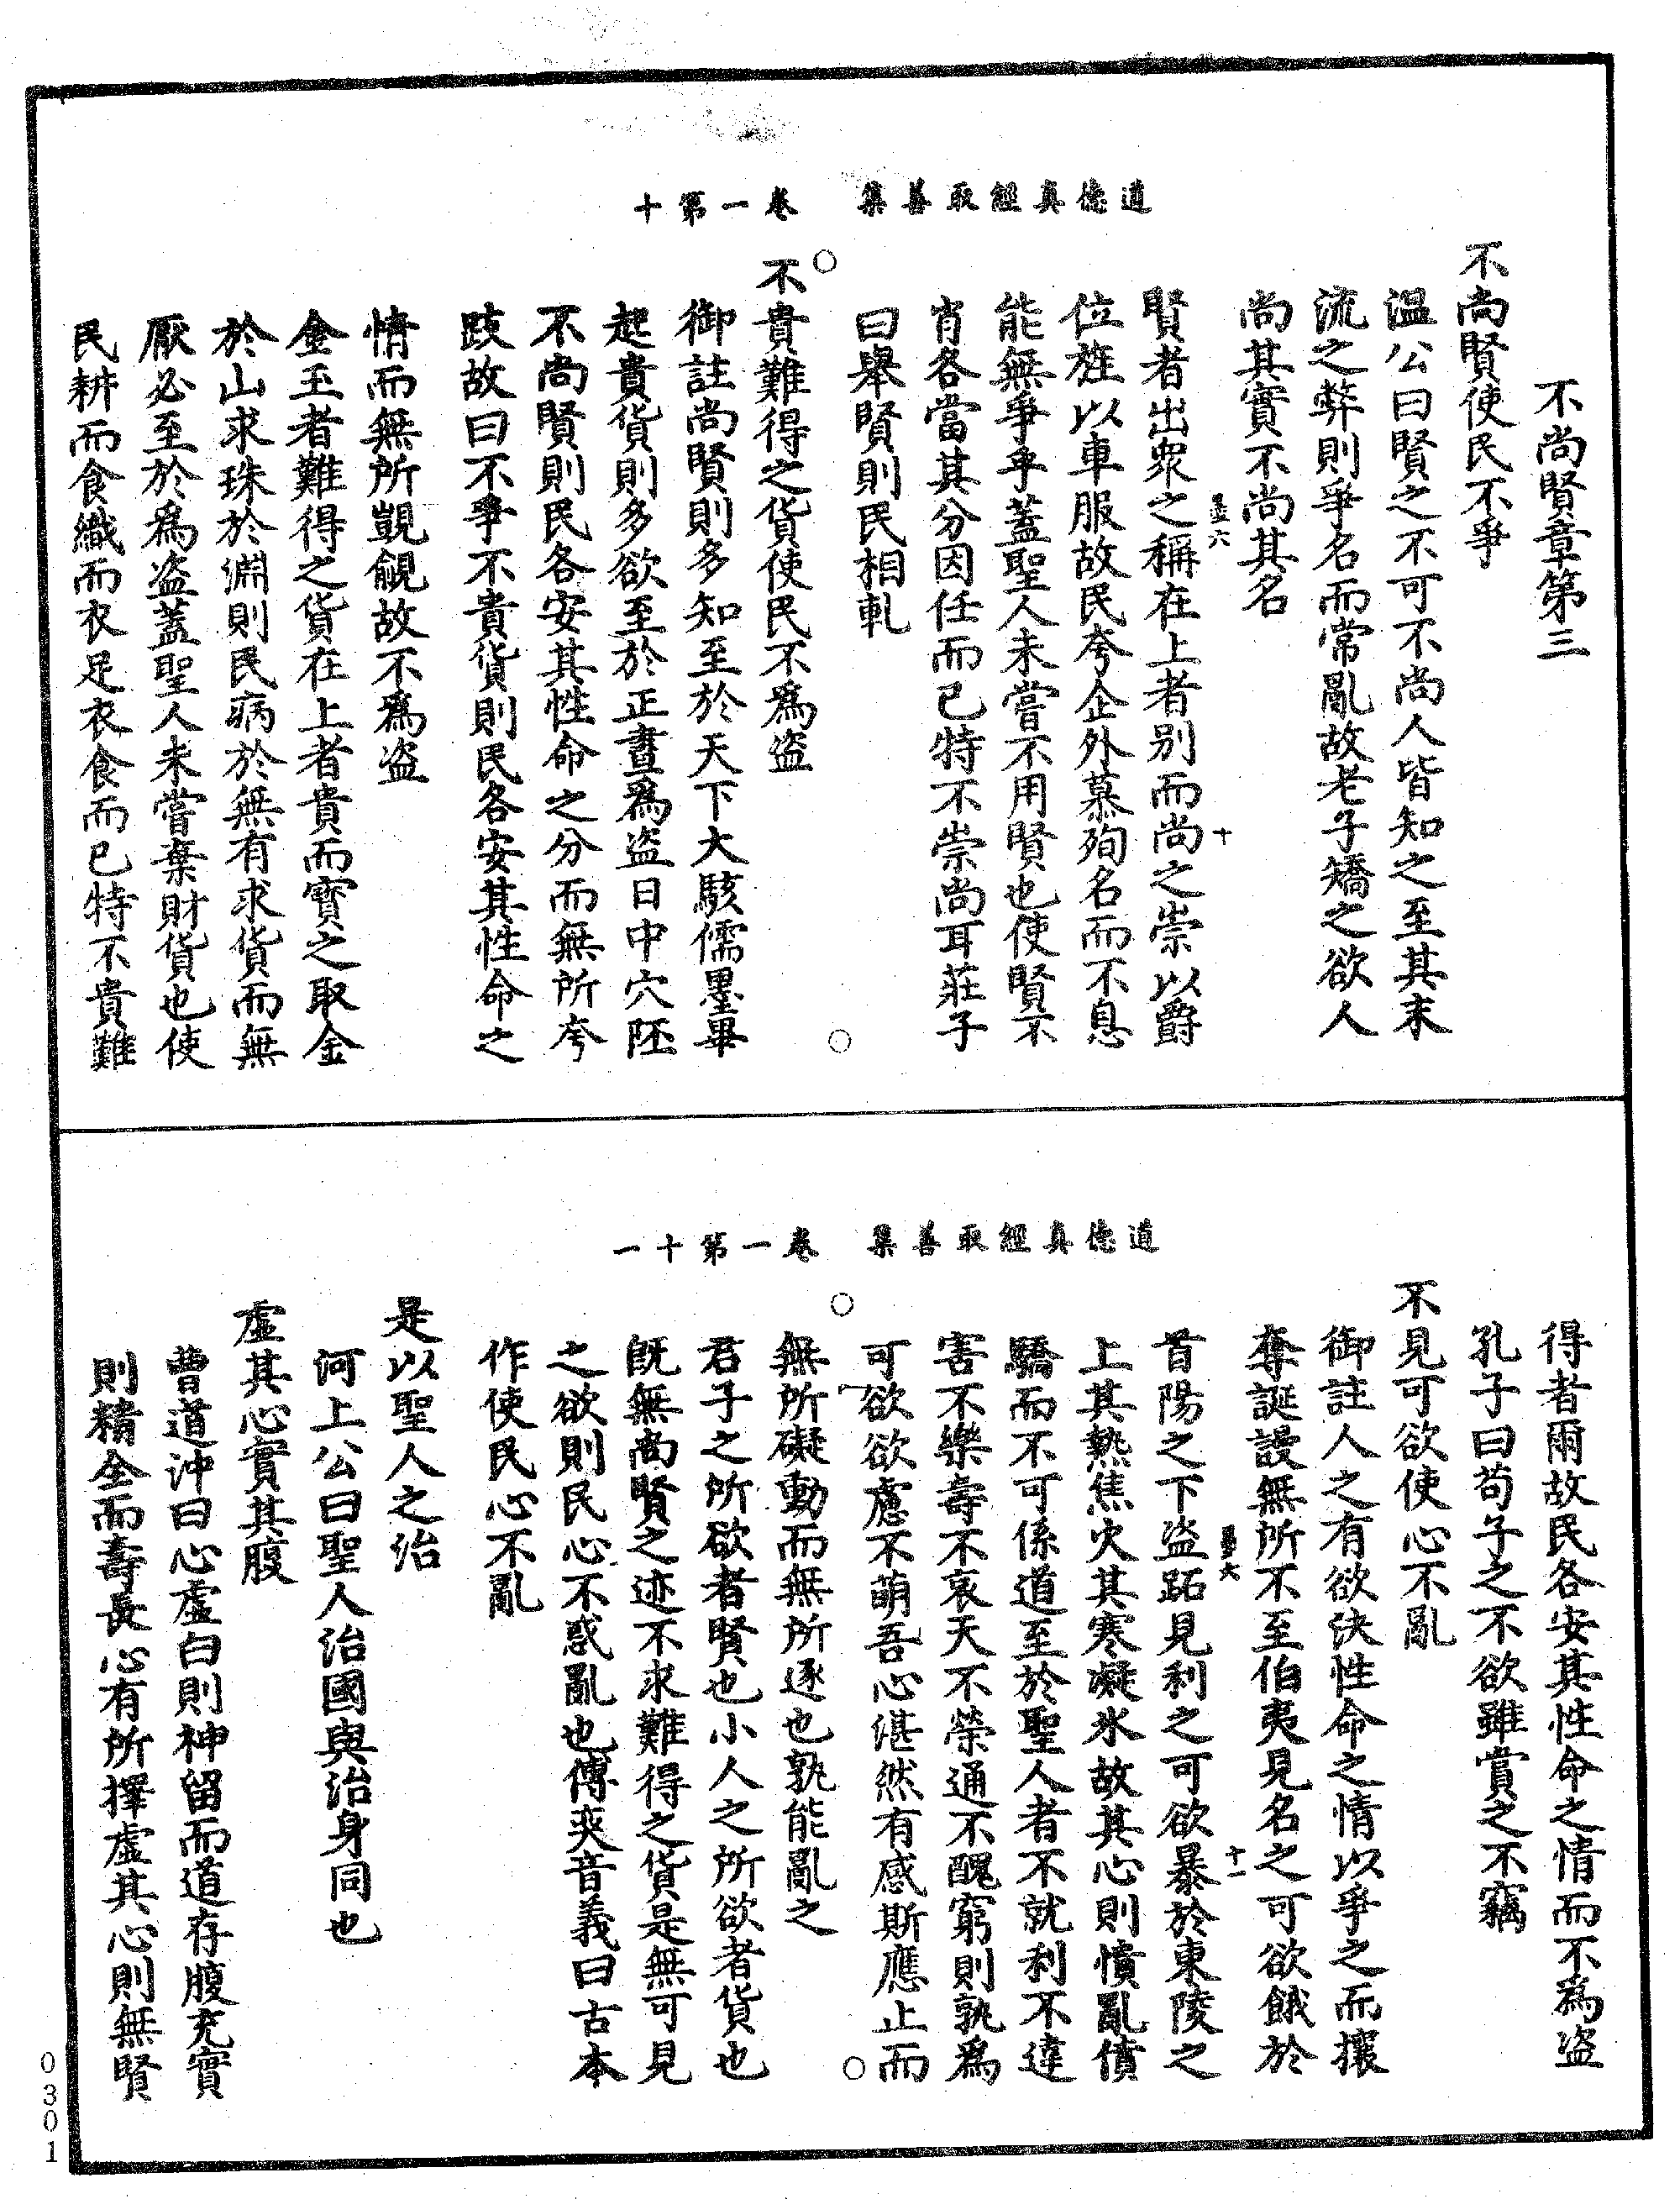 道德真經取善集　卷一第十
不尚賢章第三
不尚賢使民不爭
溫公曰賢之不可不尚人皆知之至其末
流之弊則爭名而常亂故老子矯之欲人
尚其實不尚其名
賢者出眾之稱在上者别而尚之崇以爵
位旌以車服故民夸企外慕殉名而不息
能無爭乎蓋聖人未嘗不用賢也使賢不
肖各當其分因任而已特不崇尚耳莊子
曰舉賢則民相軋
不貴難得之貨使民不爲盜
御註尚賢則多知至於天下大駭儒墨畢
起貴貨則多欲至於正晝爲盜日中穴阫
不尚賢則民各安其性命之分而無所夸
跂故曰不爭不貴貨則民各安其性命之
情而無所覬覦故不爲盜
金玉者難得之貨在上者貴而寶之取金
於山求珠於淵則民病於無有求貨而無
厭必至於爲盜蓋聖人未嘗棄財貨也使
民耕而食織而衣足衣食而已特不貴難
道德真經取善集　卷一第十一
得者爾故民各安其性命之情而不爲盜
孔子曰苟子之不欲雖賞之不竊
不見可欲使心不亂
御註人之有欲決性命之情以爭之而攘
奪誕謾無所不至伯夷見名之可欲餓於
首陽之下盜跖見利之可欲暴於東陵之
上其熱焦火其寒凝氷故其心則憤亂僨
驕而不可係道至於聖人者不就利不違
害不樂壽不哀夭不榮通不醜窮則孰爲
可欲欲慮不萌吾心湛然有感斯應止而
無所礙動而無所逐也孰能亂之
君子之所欲者賢也小人之所欲者貨也
既無尚賢之迹不求難得之貨是無可見
之欲則民心不惑亂也傅奕音義曰古本
作使民心不亂
是以聖人之治
河上公曰聖人治國與治身同也
虛其心實其腹
曹道沖曰心虛白則神留而道存腹充實
則精全而壽長心有所擇虛其心則無賢
0301